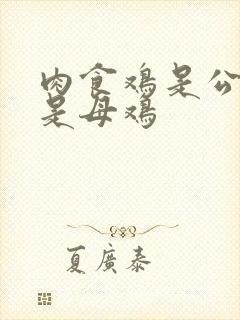 肉食鸡是公
是母鸡
夏廣泰